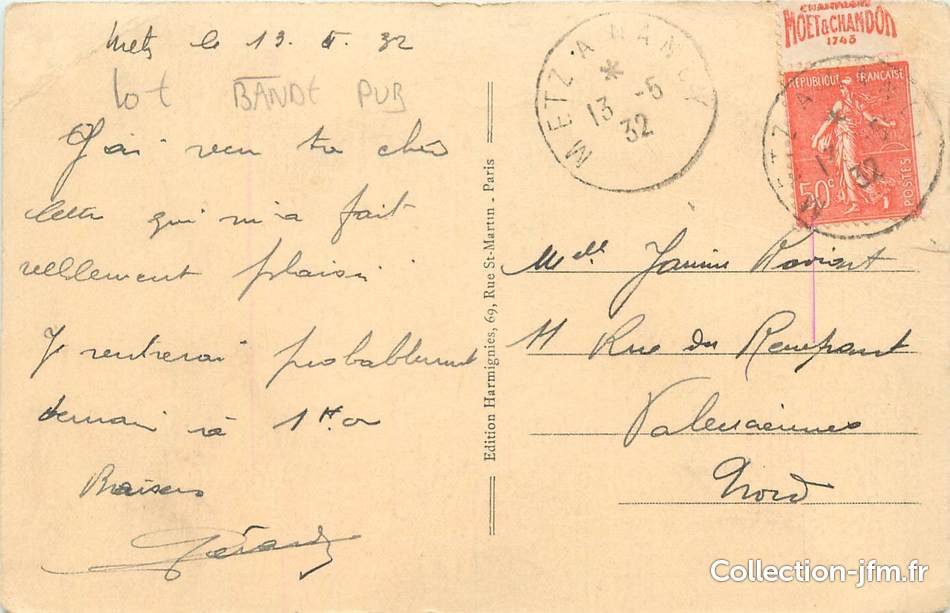 Metz le 13. 5. 32
lot BANDE PUB
J'ai reçu ta chère
lettre qui m'a fait
réellement plaisir
Je rentrerai probablement
demain à 1H
Baisers
Gérard
Edition Harmignies, 69, Rue St-Martin - Paris
METZ A NANCY
13 -5
32
CHAMPAGNE
MOËT & CHANDON
1743
REPUBLIQUE FRANÇAISE
50c
POSTES
13 -5
32
Melle Janine
11 Rue du Rempart
Valenciennes
Nord
Collection-jfm.fr